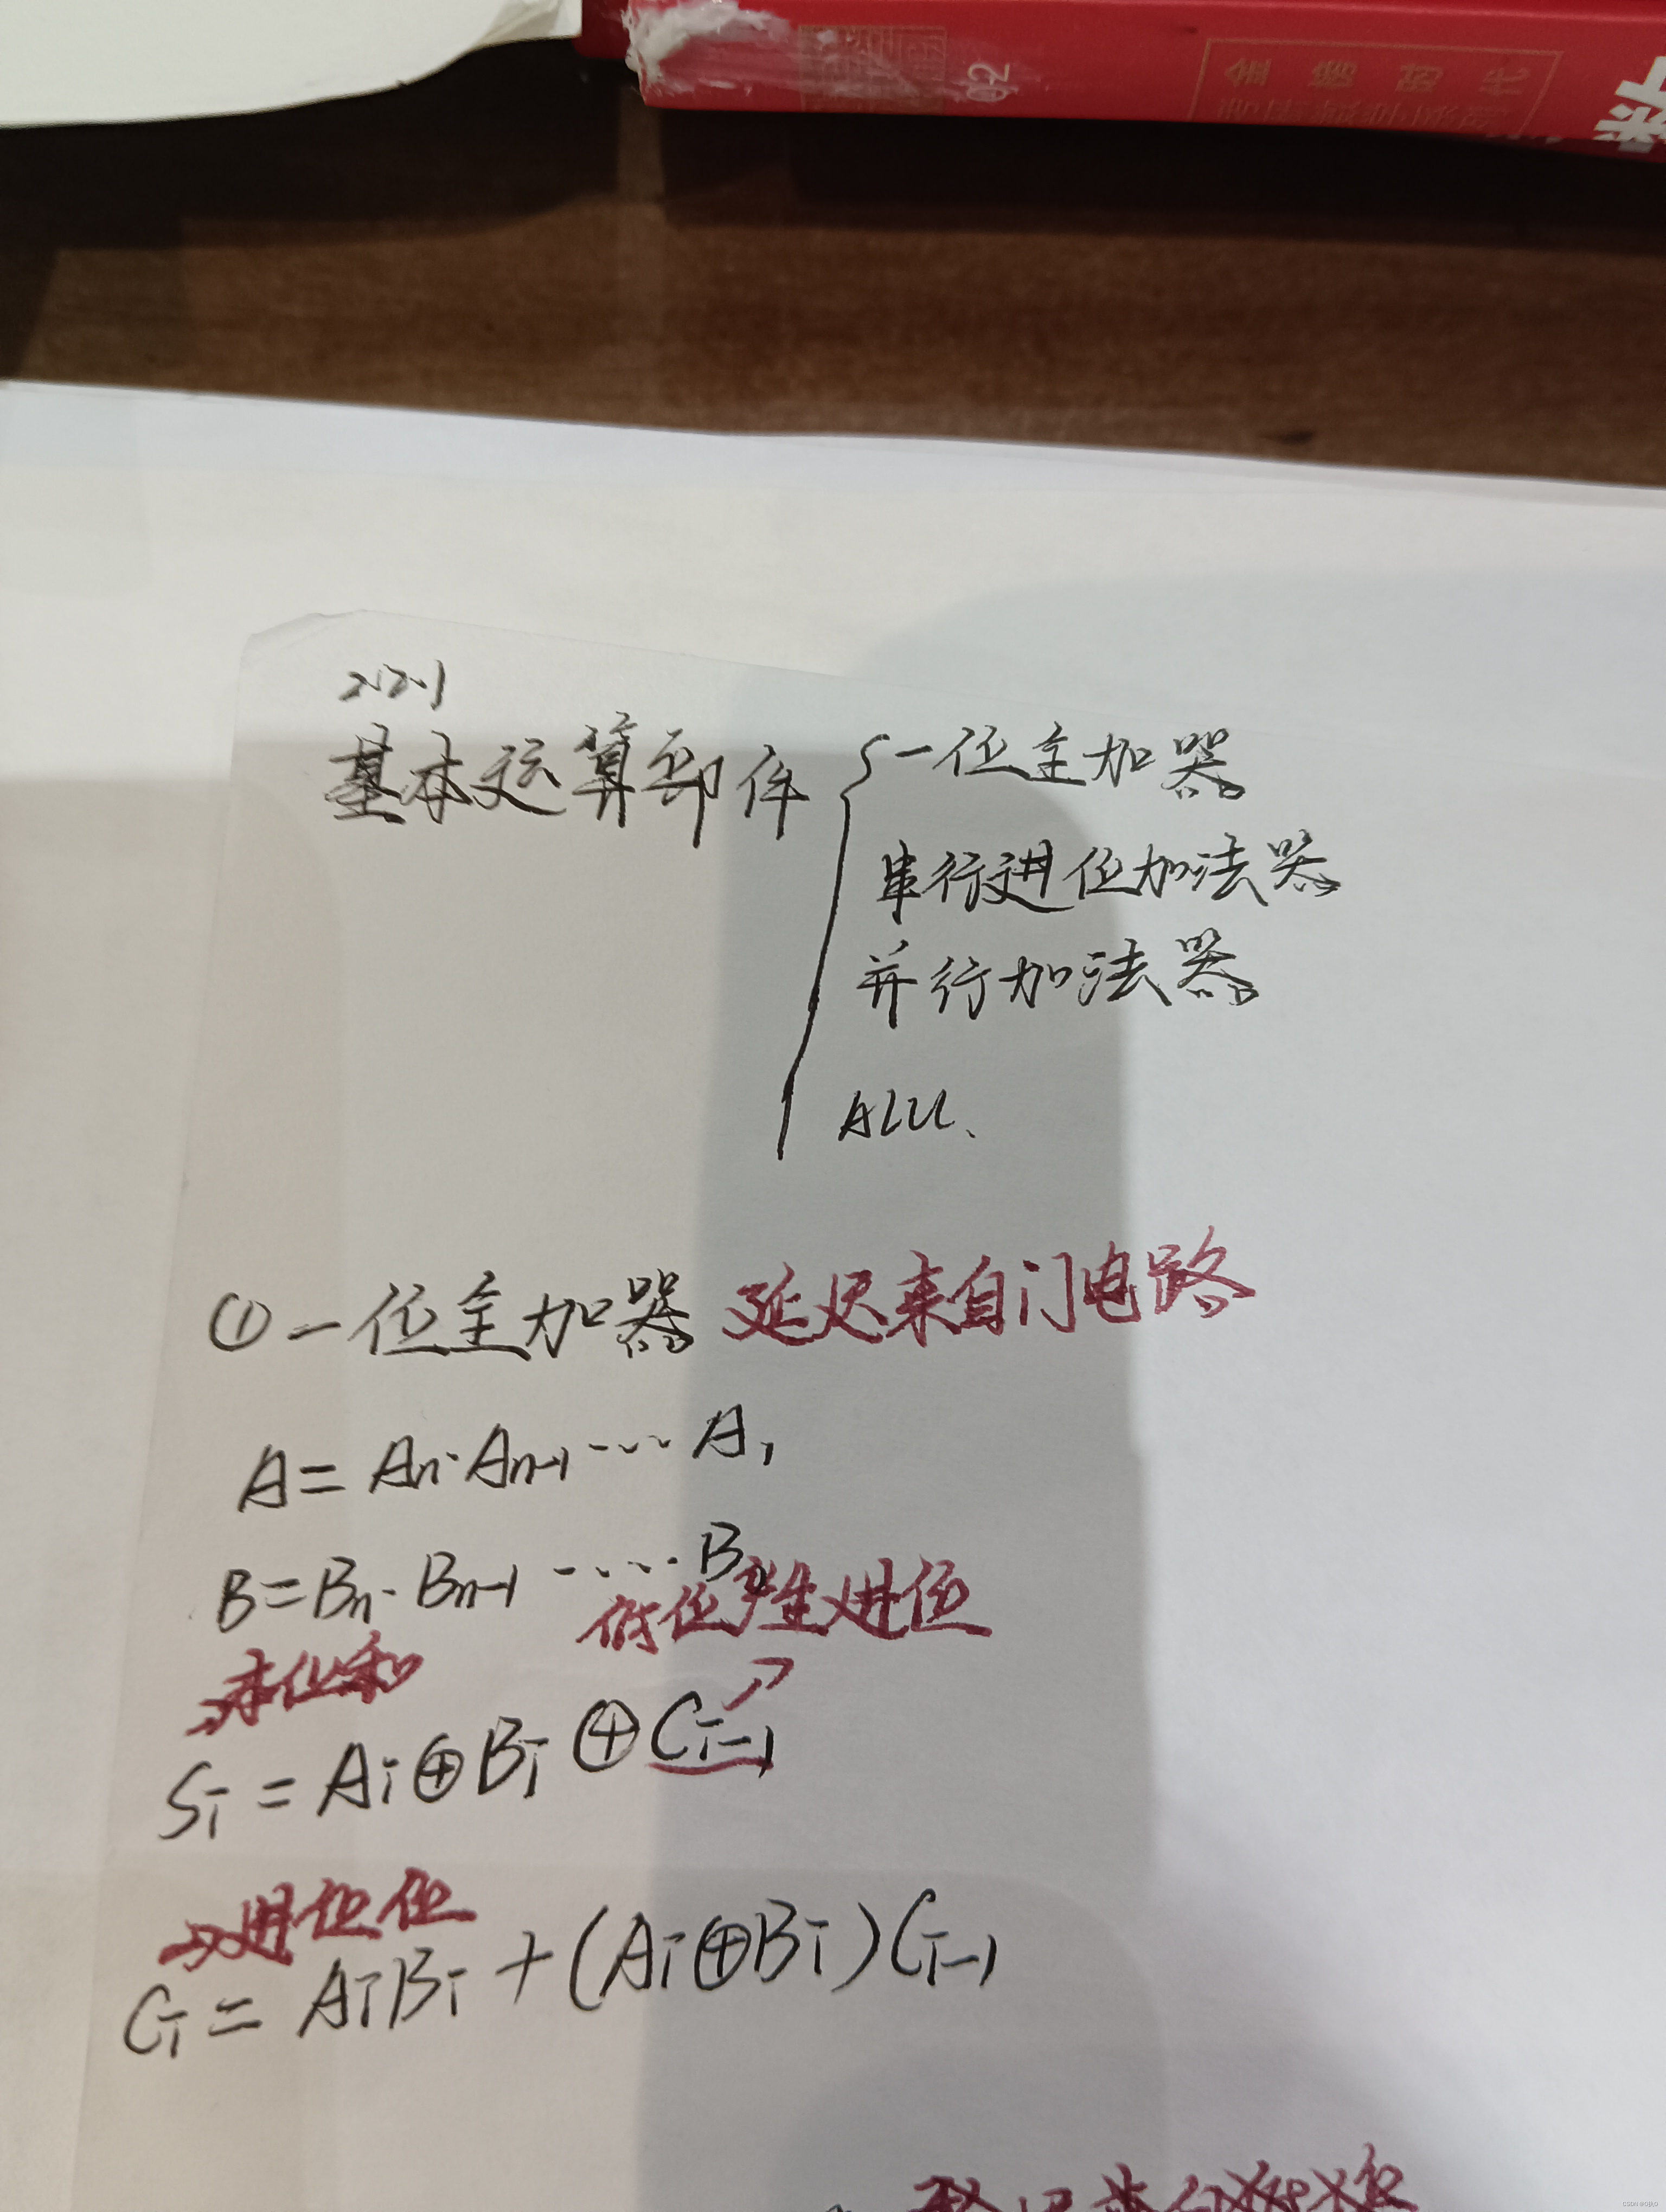 02
金榜时代
2.2.1
基本运算部件 { 一位全加器
串行进位加法器
并行加法器
ALU、
① 一位全加器 延迟来自门电路
A = An·An-1 ···· A1
B = Bn·Bn-1 ····· B1
低位产生进位
本位和
Si = Ai ⊕ Bi ⊕ Ci-1
→进位位
Ci = AiBi + (Ai⊕Bi)Ci-1
延迟来自